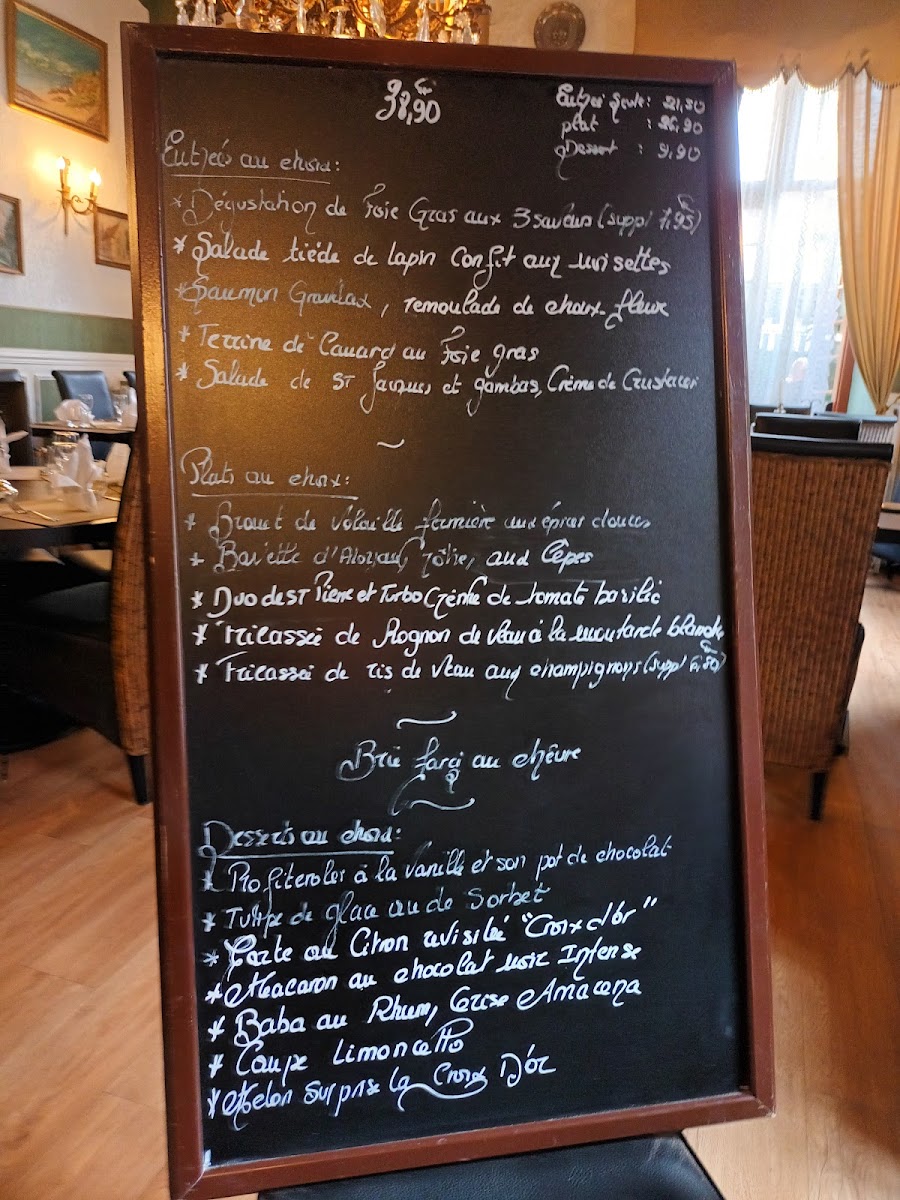 38,90 €
Entrée seule : 21,50
plat : 26,90
Dessert : 9,90
Entrées au choix :
* Dégustation de Foie Gras aux 3 saveurs (suppl 7,95 €)
* Salade tiède de lapin Confit aux noisettes
* Saumon Gravelax, remoulade de choux-fleur
* Terrine de Canard au Foie gras
* Salade de ST Jacques et gambas, Crème de Crustacés
Plats au choix :
* Brouet de Volaille fermière aux épices douces
* Bavette d'Aloyau, rôtie, aux Cêpes
* Duo de ST Pierre et Turbo Crème de tomate basilic
* Fricassée de Rognon de veau à la moutarde blanche
* Fricassée de ris de veau aux champignons (suppl €)
Brie farçi au chêvre
Desserts au choix :
* Profiteroles à la vanille et son pot de chocolat
* Tulipe de glace ou de Sorbet
* Tarte au Citron revisitée "Croix d'or"
* Macaron au chocolat noir Intense
* Baba au Rhum, Cerise Amarena
* Coupe Limoncello
* Melon Surprise la Croix D'Or